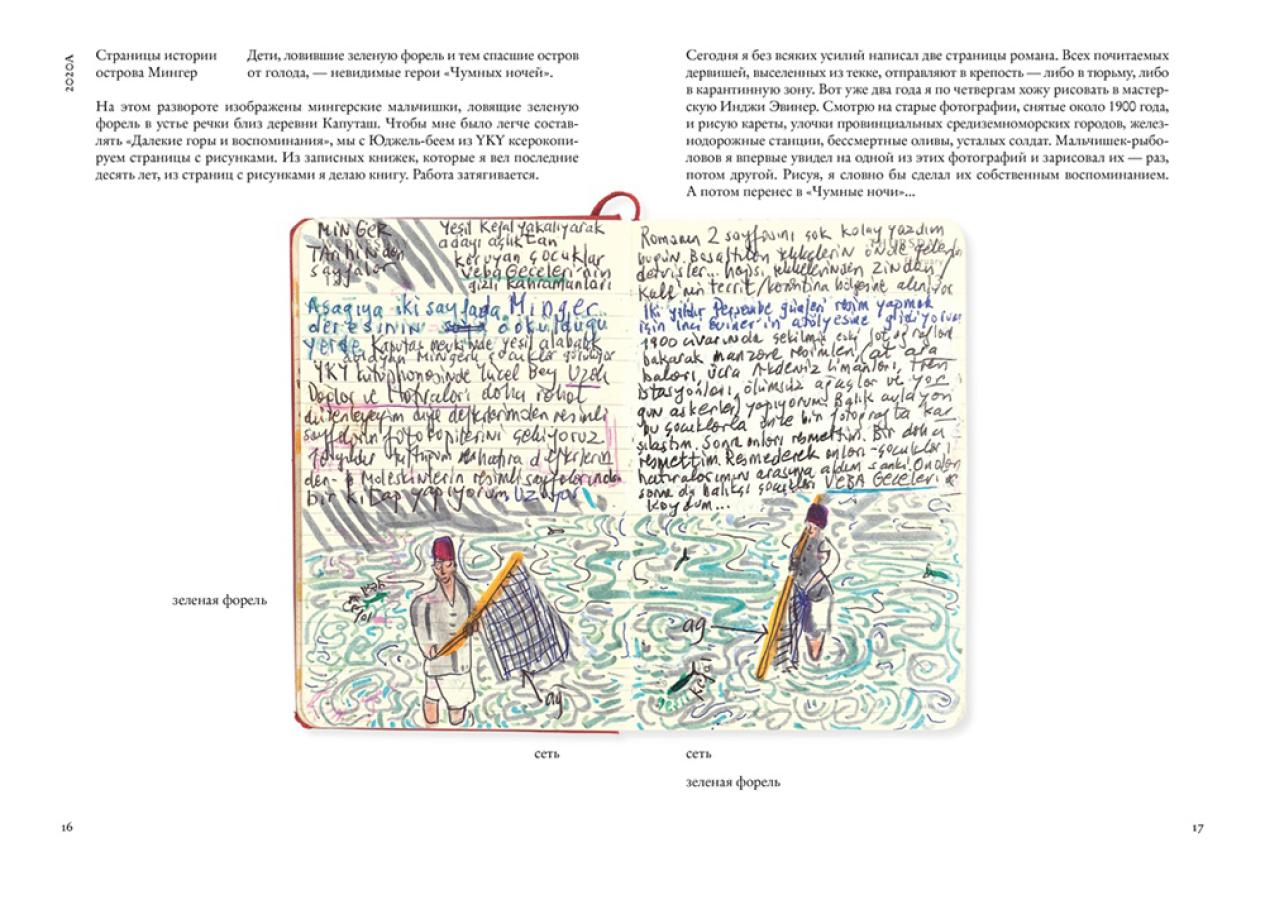 2020А
Страницы истории
острова Мингер
Дети, ловившие зеленую форель и тем спасшие остров
от голода, — невидимые герои «Чумных ночей».
На этом развороте изображены мингерские мальчишки, ловящие зеленую
форель в устье речки близ деревни Капуташ. Чтобы мне было легче состав-
лять «Далекие горы и воспоминания», мы с Юджель-беем из YKY ксерокопи-
руем страницы с рисунками. Из записных книжек, которые я вел последние
десять лет, из страниц с рисунками я делаю книгу. Работа затягивается.
Сегодня я без всяких усилий написал две страницы романа. Всех почитаемых
дервишей, выселенных из текке, отправляют в крепость — либо в тюрьму, либо
в карантинную зону. Вот уже два года я по четвергам хожу рисовать в мастер-
скую Инджи Эвинер. Смотрю на старые фотографии, снятые около 1900 года,
и рисую кареты, улочки провинциальных средиземноморских городов, желез-
нодорожные станции, бессмертные оливы, усталых солдат. Мальчишек-рыбо-
ловов я впервые увидел на одной из этих фотографий и зарисовал их — раз,
потом другой. Рисуя, я словно бы сделал их собственным воспоминанием.
А потом перенес в «Чумные ночи»...
MİNGER
WEDNESDAY
TARihinden
sayfalar
Yeşil Kefal yakalıyarak
adayı açlıktan
koruyan çocuklar
Veba Geceleri'nin
gizli kahramanları
Aşağıya iki sayfada Minger
deresinin döküldüğü
yerde Kaputaş mevkinde yeşil alabalık
Mingerli çocuklar
YKY kütüphanesinde Yücel Bey Uzak
Dağlar ve Hatıralar daha rahat
düzenleyeyim diye defterlerimden resimli
sayfaların fotokopilerini çekiyoruz
hatıra defterlerin
den Moleskinlerin resimli sayfalarından
bir kitap yapıyorum. Uzuyor
Romanın 2 sayfasını çok kolay yazdım
THURSDAY
bugün. tekkelerin önde gelen
dervişler... hepsi tekkelerinden zindan/
Kale'nin tecrit/karantina bölgesine alınıyor
İki yıldır Perşembe günleri resim yapmak
için İnci Eviner'in atölyesine gidiyorum
1900 civarında çekilmiş eski fotoğraflara
bakarak manzara resimleri, at ara
baları, ücra Akdeniz limanları, tren
istasyonları, ölümsüz ağaçlar ve yor
gun askerler yapıyorum. Balık avlayan
bu çocuklarla önce bir fotoğrafta kar
şılaştım. Sonra onları resmettim. Bir daha
resmettim. Resmederek onları -çocukları
hatıralarımın arasına aldım sanki. Onları
sonra da balıkçı çocukları VEBA Geceleri'ne
koydum...
yeşil
kefal
ağ
ağ
yeşil
kefal
зеленая форель
сеть
сеть
зеленая форель
16
17